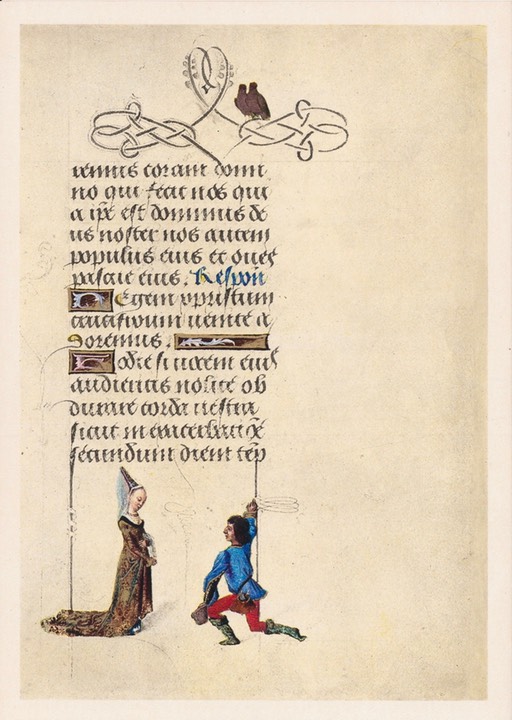 remus coram domi
no qui fecit nos qui
a ip̄e est dominus de
us noster nos autem
populus eius et oues
pascue eius. Respon̄
Regem xpristum
crucifixum uenite a
doremus.
Hodie si uocem eius
audieritis nolite ob
durare corda uestra
sicut in exacerbac̄oe
secundum diem tēp